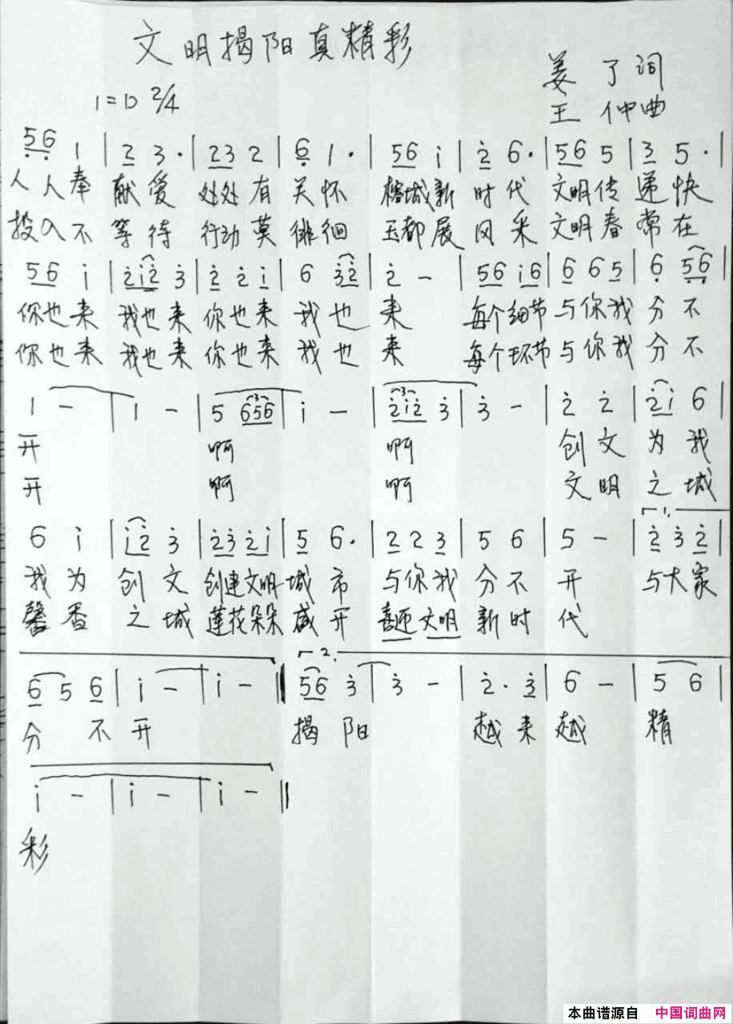 文明揭阳真精彩
姜 了词
1=D 2/4
王 仲曲
56 1 | 2 3· | 23 2 | 6 1· | 56 i | 2 6· | 56 5 | 3 5· |
人人奉 献爱 处处有 关怀 榕城新 时代 文明传 递快
投入不 等待 行动莫 徘徊 玉都展 风采 文明春 常在
56 i | 2i2 3 | 2 2i | 6 32 | 2 - | 56 i6 | 6 65 | 6 56 |
你也来 我也来 你也来 我也 来 每个细节 与你我 分不
你也来 我也来 你也来 我也 来 每个环节 与你我 分不
1 - | 1 - | 5 656 | i - | 2i2 3 | 3 - | 2 2 | 2i 6 |
开 啊 啊 创文 为我
开 啊 啊 文明 之城
6 i | i2 3 | 23 2i | 5 6· | 22 3 | 5 6 | 5 - | 2 3 2 |
我为 创文 创建文明 城市 与你我 分不 开 与大家
馨香 之城 莲花朵朵 盛开 文明 新时 代
6 5 6 | i - | i - | 56 3 | 3 - | 2· 3 | 6 - | 5 6 |
分 不开 揭阳 越来 越 精
i - | i - | i - ‖
彩
本曲谱源自 中国词曲网